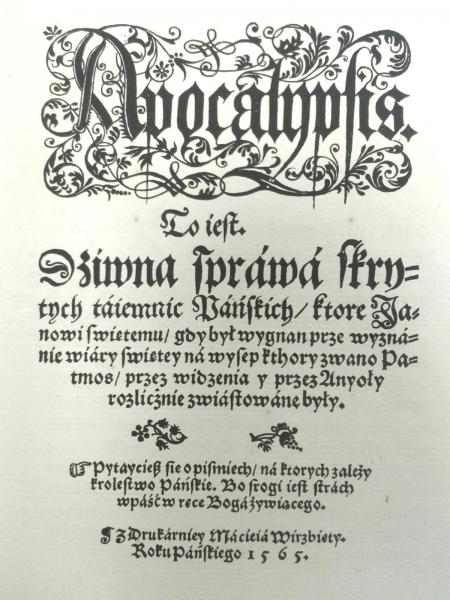 Apocalypsis.
To iest.
Dziwna spráwá skry-
tych táiemnic Páńskich/ ktore Ja-
nowi swietemu/ gdy był wygnan prze wyzná-
nie wiáry swietey ná wysep kthory zwano Pa-
tmos/ przez widzenia y przez Anyoły
rozlicżnie zwiástowáne były.
Pytaycieß sie o pismiech/ ná ktorych zależy
krolestwo Páńskie. Bo srogi iest strách
wpáść w rece Bogá żywiacego.
¶ Z Drukárniey Mácieiá Wirzbiety.
Roku Páńskiego 1565.